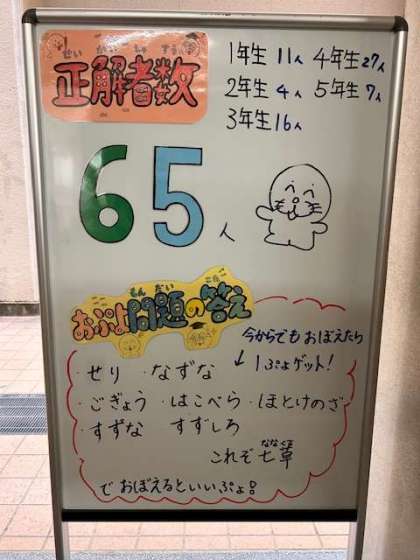 せい かい しゃ すう
正解者数
1年生 11人 4年生27人
2年生 4人 5年生 7人
3年生16人
65人
もん だい こた
おぷよ問題の答え
今からでもおぼえたら
↓1ぷよゲット!
・せり ・なずな
・ごぎょう ・はこべら ・ほとけのざ
・すずな すずしろ
ななくさ
これぞ七草
でおぼえるといいぷよ!